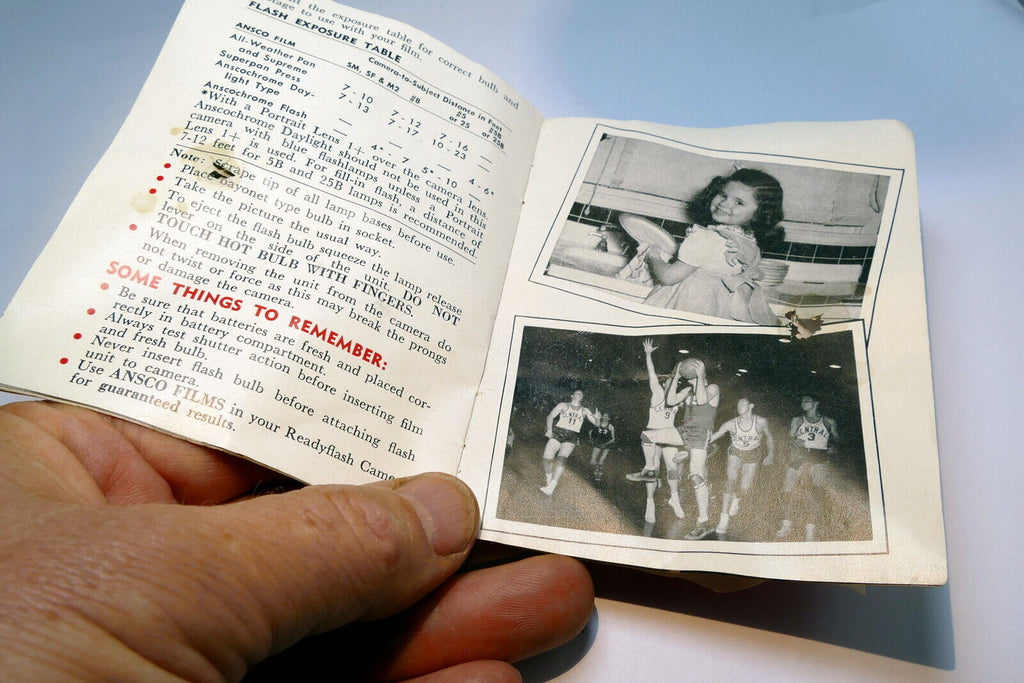 the exposure table for correct bulb and
stage to use with your film.
FLASH EXPOSURE TABLE
Camera-to-Subject Distance in Feet
ANSCO FILM SM, SF & M2 #8 #5 or 25 #5B or 25B
All-Weather Pan
and Supreme 7 - 10 7 - 12 7 - 16 —
Superpan Press 7 - 13 7 - 17 10 - 23 —
Anscochrome Day-
light Type — — — 4 - 6*
Anscochrome Flash — 4* - 7 5* - 10 —
*With a Portrait Lens 1+ over the camera lens.
Anscochrome Daylight should not be used in this
camera with blue flashlamps unless a Portrait
Lens 1+ is used. For fill-in flash, a distance of
7-12 feet for 5B and 25B lamps is recommended.
Note: Scrape tip of all lamp bases before use.
• Place bayonet type bulb in socket.
• Take the picture the usual way.
• To eject the flash bulb squeeze the lamp release
lever on the side of the unit. DO NOT
TOUCH HOT BULB WITH FINGERS.
• When removing the unit from the camera do
not twist or force as this may break the prongs
or damage the camera.
SOME THINGS TO REMEMBER:
• Be sure that batteries are fresh and placed cor-
rectly in battery compartment.
• Always test shutter action before inserting film
and fresh bulb.
• Never insert flash bulb before attaching flash
unit to camera.
• Use ANSCO FILMS in your Readyflash Came
for guaranteed results.
CENTRAL
11
23
9
CENTRAL
5
CENTRAL
3